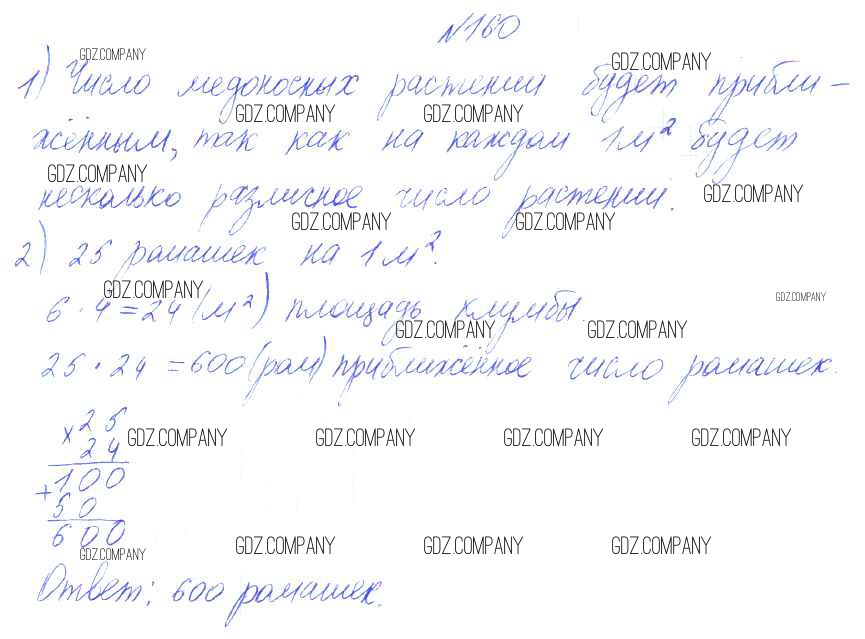 №160
GDZ.COMPANY GDZ.COMPANY
1) Число медоносных растений будет прибли-
GDZ.COMPANY GDZ.COMPANY
жённым, так как на каждом 1 м² будет
GDZ.COMPANY GDZ.COMPANY
несколько различное число растений.
GDZ.COMPANY GDZ.COMPANY
2) 25 ромашек на 1 м².
GDZ.COMPANY GDZ.COMPANY
6 · 4 = 24 (м²) площадь клумбы.
GDZ.COMPANY GDZ.COMPANY
25 · 24 = 600 (ром) приближённое число ромашек.
× 25
24
GDZ.COMPANY GDZ.COMPANY GDZ.COMPANY GDZ.COMPANY
+ 100
50
600
GDZ.COMPANY GDZ.COMPANY GDZ.COMPANY GDZ.COMPANY
Ответ: 600 ромашек.